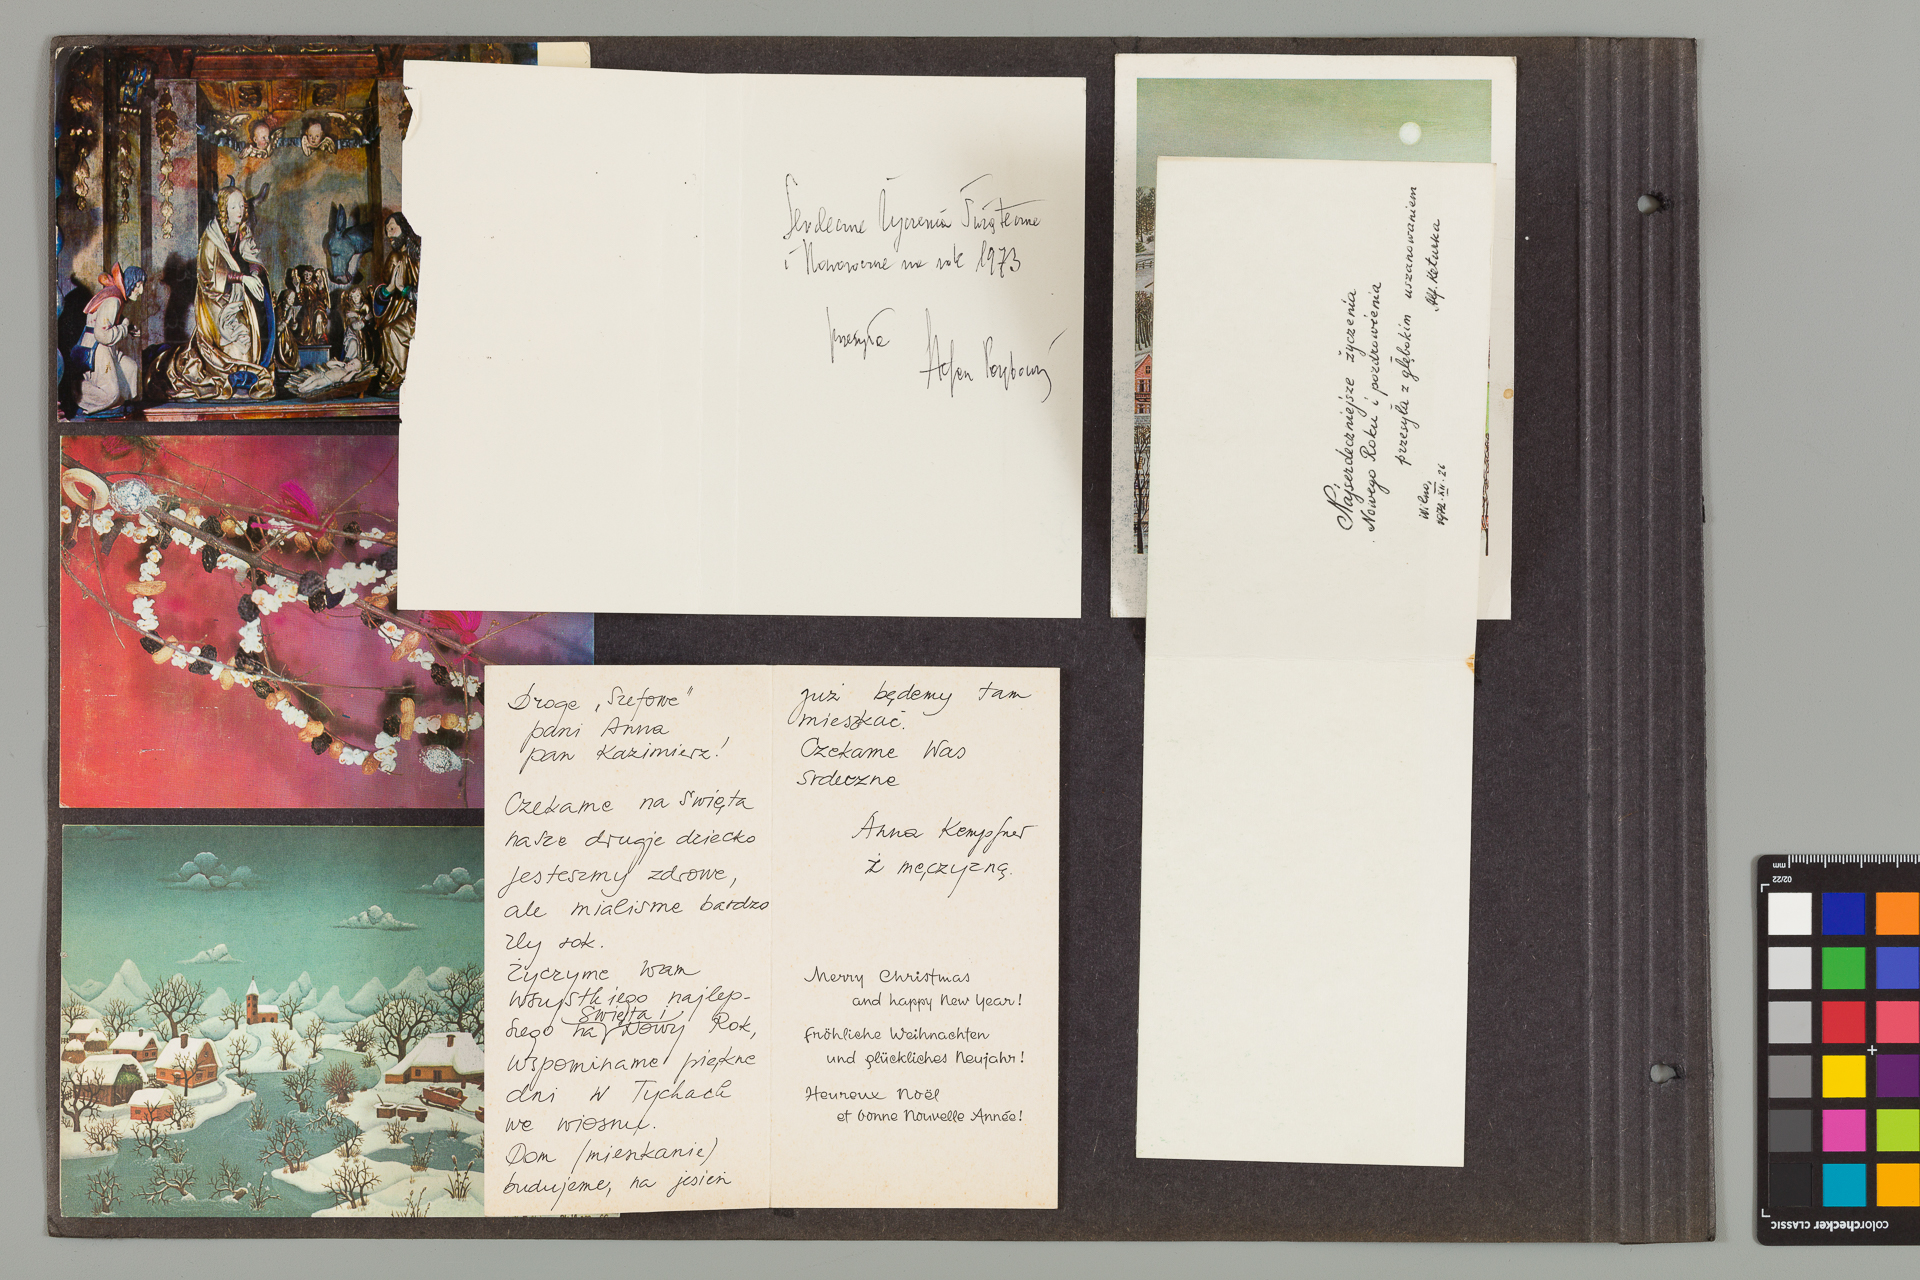 Serdeczne Życzenia Świąteczne
i Noworoczne na rok 1973
przesyła
Stefan
Droge „Szefowe"
pani Anna
pan Kazimierz!
Czekame na święta
nasze drugje dziecko
jesteszmy zdrowe,
ale mialisme bardzo
zly rok.
życzyme Wam
wszystkiego najlep-
szego na Święta i Nowy Rok,
wspominame piękne
dni w Tychach
we wiosnie.
Dom (mieszkanie)
budujeme, na jesień
już będemy tam
mieszkać.
Czekame Was
srdeczne
Anna Kempfner
ż męczyzną.
Merry Christmas
and happy New Year!
Fröhliche Weihnachten
und glückliches Neujahr!
Heureux Noël
et bonne Nouvelle Année!
Najserdeczniejsze życzenia
Nowego Roku i pozdrowienia
przesyła z głębokim uszanowaniem
Wilno,
1972·XII·26
Alf. Keturka
mm
02/22
colorchecker CLASSIC